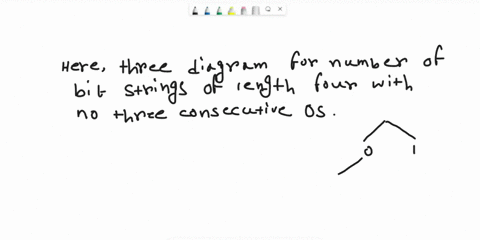 Here, three diagram for number of
bit strings of length four with
no three consecutive 0s.
0 1